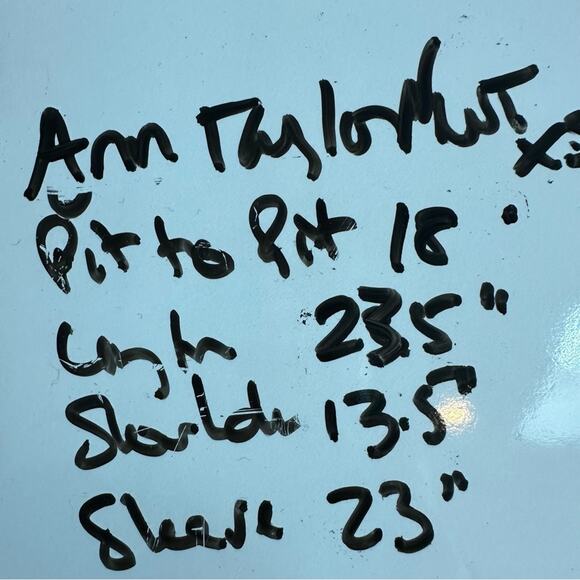 Ann Taylor
Pit to Pit 18"
Length 23.5"
Shoulder 13.5"
Sleeve 23"